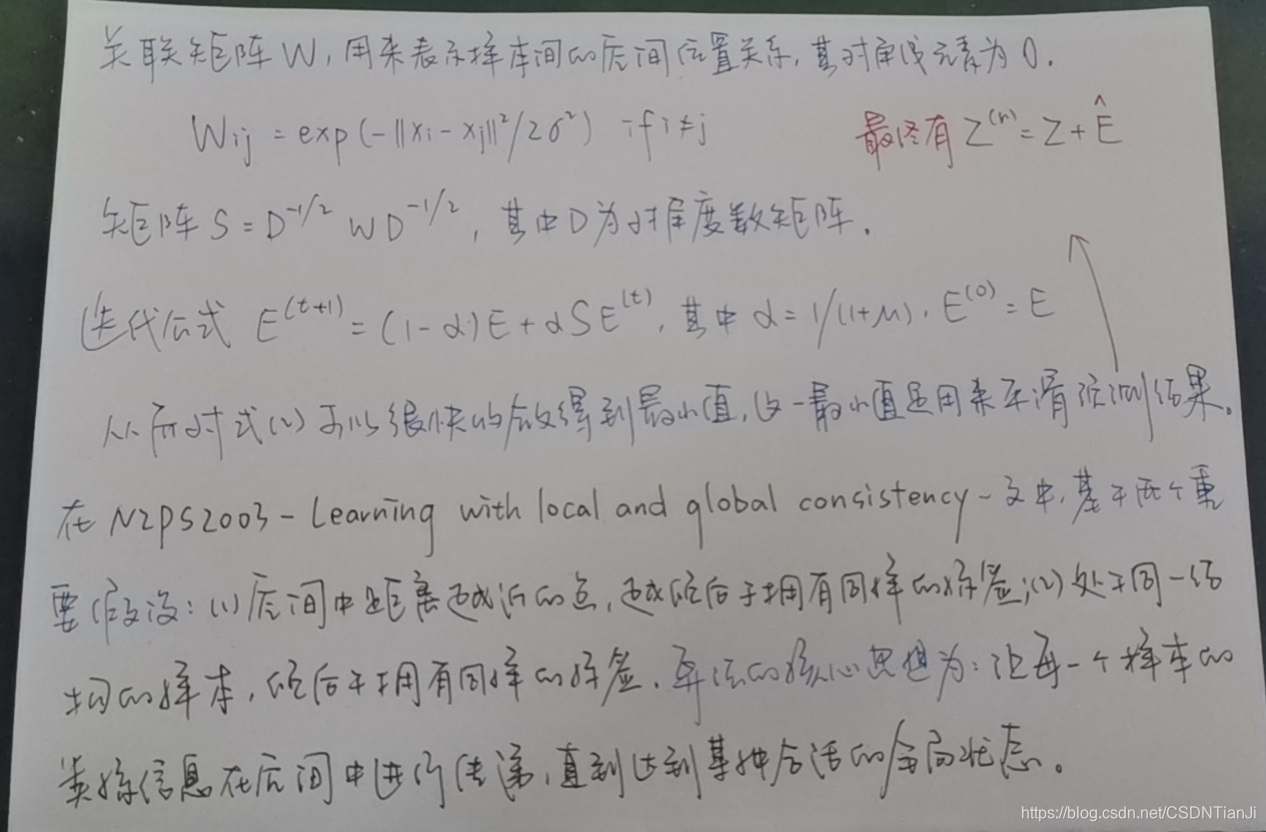 关联矩阵W,用来表示样本间的空间位置关系,其对角线元素为0.
Wij = exp(-||xi - xj||²/2σ²) if i≠j
最终有 Z⁽ⁿ⁾ = Z + Ê
矩阵 S = D^{-1/2} W D^{-1/2}, 其中D为对角度数矩阵.
迭代公式 E^{(t+1)} = (1-α)E + αSE^{(t)}, 其中 α = 1/(1+μ), E^{(0)} = E
从而对式(2)可以很快的收敛得到最小值,这一最小值是用来平滑预测结果。
在NIPS2003-Learning with local and global consistency-文中,基于两个重
要假设:(1)空间中距离越近的点,越倾向于拥有同样的标签;(2)处于同一结
构的样本,倾向于拥有同样的标签.算法的核心思想为:让每一个样本的
类标信息在空间中进行传递,直到达到某种合适的全局状态。
https://blog.csdn.net/CSDNTianJi